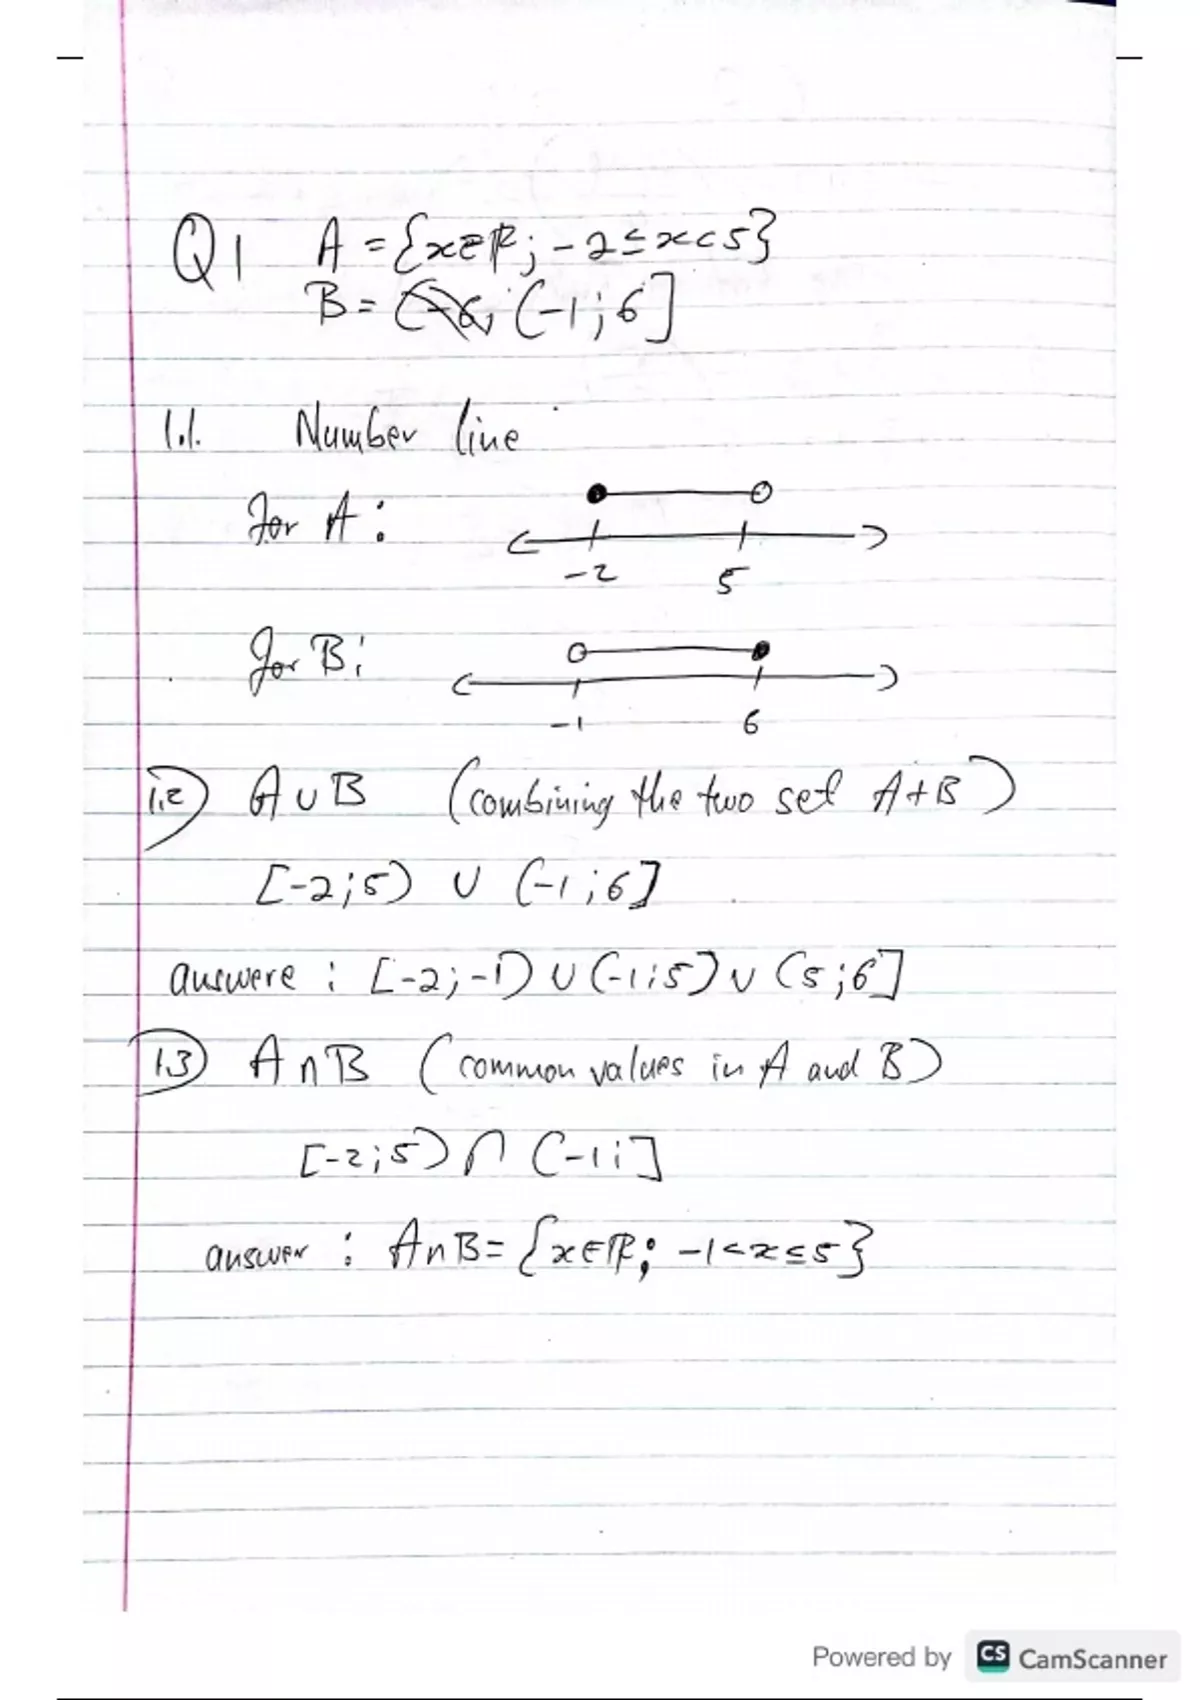 Q1 A = {x∈ℝ; -2≤x<5}
B = (-6; (-1;6]
1.1. Number line
for A:
-2 5
for B:
-1 6
1.2) A∪B (combining the two set A+B)
[-2;5) ∪ (-1;6]
answere : [-2;-1) ∪ (-1;5) ∪ (5;6]
1.3) A∩B (common values in A and B)
[-2;5) ∩ (-1;]
answer : A∩B = {x∈ℝ; -1<x≤5}
Powered by CS CamScanner